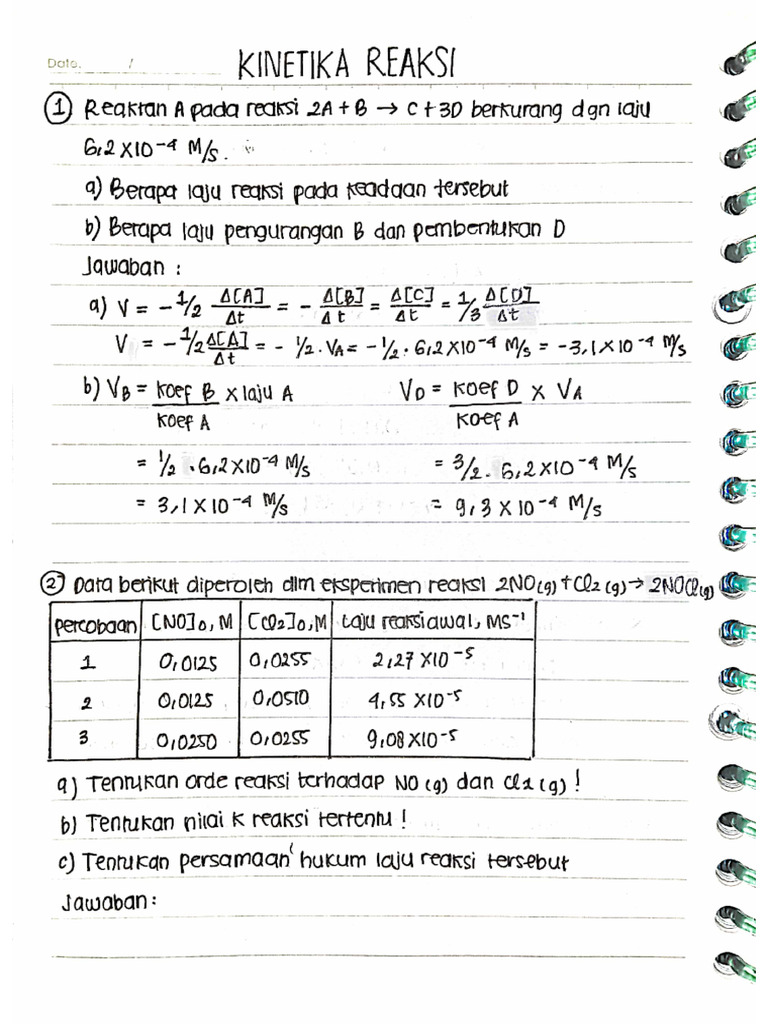 Date. /
KINETIKA REAKSI
① Reaktan A pada reaksi 2A + B → C + 3D berkurang dgn laju
6,2 X 10⁻⁴ M/s.
a) Berapa laju reaksi pada keadaan tersebut
b) Berapa laju pengurangan B dan pembentukan D
Jawaban :
a) V = -1/2 Δ[A]/Δt = - Δ[B]/Δt = Δ[C]/Δt = 1/3 Δ[D]/Δt
V = -1/2 Δ[A]/Δt = - 1/2 . VA = -1/2 . 6,2 X 10⁻⁴ M/s = -3,1 X 10⁻⁴ M/s
b) VB = koef B / koef A x laju A VD = koef D / koef A X VA
= 1/2 . 6,2 X 10⁻⁴ M/s = 3/2 . 6,2 X 10⁻⁴ M/s
= 3,1 X 10⁻⁴ M/s = 9,3 X 10⁻⁴ M/s
② Data berikut diperoleh dlm eksperimen reaksi 2NO(g) + Cl2 (g) → 2NOCl(g)
percobaan [NO]0, M [Cl2]0, M Laju reaksi awal, MS⁻¹
1 0,0125 0,0255 2,27 X 10⁻⁵
2 0,0125 0,0510 4,55 X 10⁻⁵
3 0,0250 0,0255 9,08 X 10⁻⁵
a) Tentukan orde reaksi terhadap NO (g) dan Cl2 (g) !
b) Tentukan nilai K reaksi tertentu !
c) Tentukan persamaan hukum laju reaksi tersebut
Jawaban :